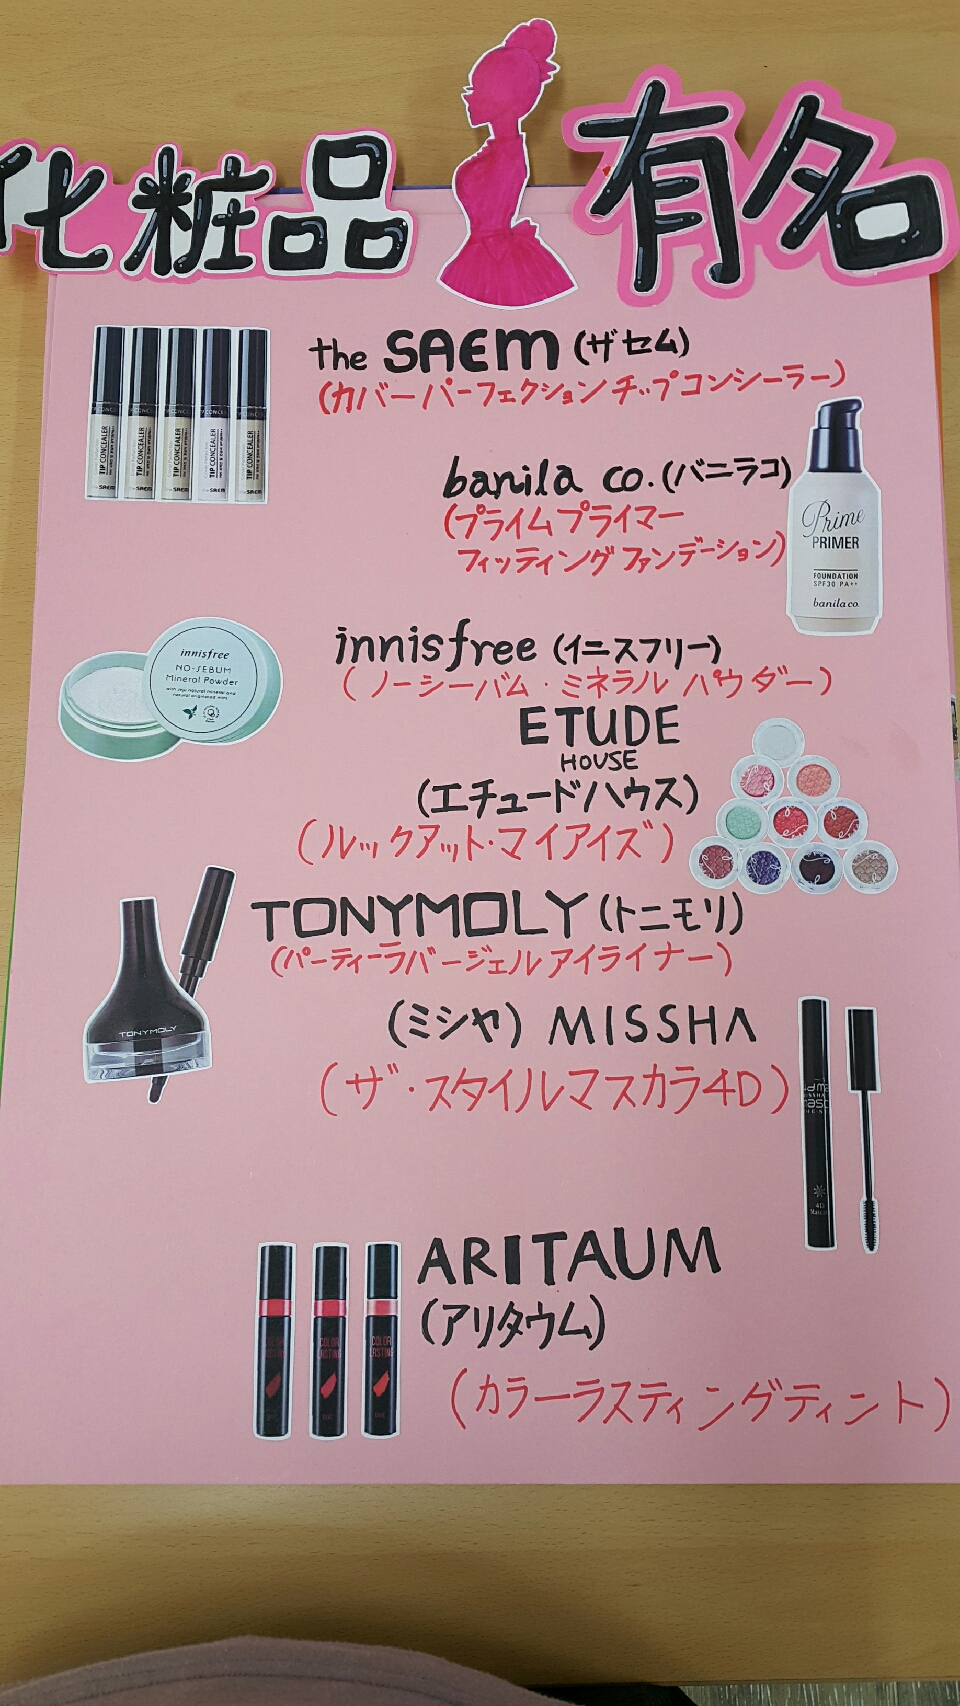 化粧品 有名
the SAEM (ザセム)
(カバーパーフェクションチップコンシーラー)
TIP CONCEALER TIP CONCEALER TIP CONCEALER TIP CONCEALER TIP CONCEALER
the SAEM the SAEM the SAEM the SAEM the SAEM
banila co. (バニラコ)
(プライムプライマー
フィッティングファンデーション)
Prime
PRIMER
FOUNDATION
SPF30 PA++
banila co.
innisfree (イニスフリー)
(ノーシーバム・ミネラル パウダー)
innisfree
NO-SEBUM
Mineral Powder
ETUDE
HOUSE
(エチュードハウス)
(ルックアット・マイアイズ)
TONYMOLY (トニモリ)
(パーティーラバージェルアイライナー)
TONYMOLY
(ミシャ) MISSHA
(ザ・スタイルマスカラ4D)
4D
ARITAUM
(アリタウム)
(カラーラスティングティント)
COLOR COLOR
LASTING LASTING